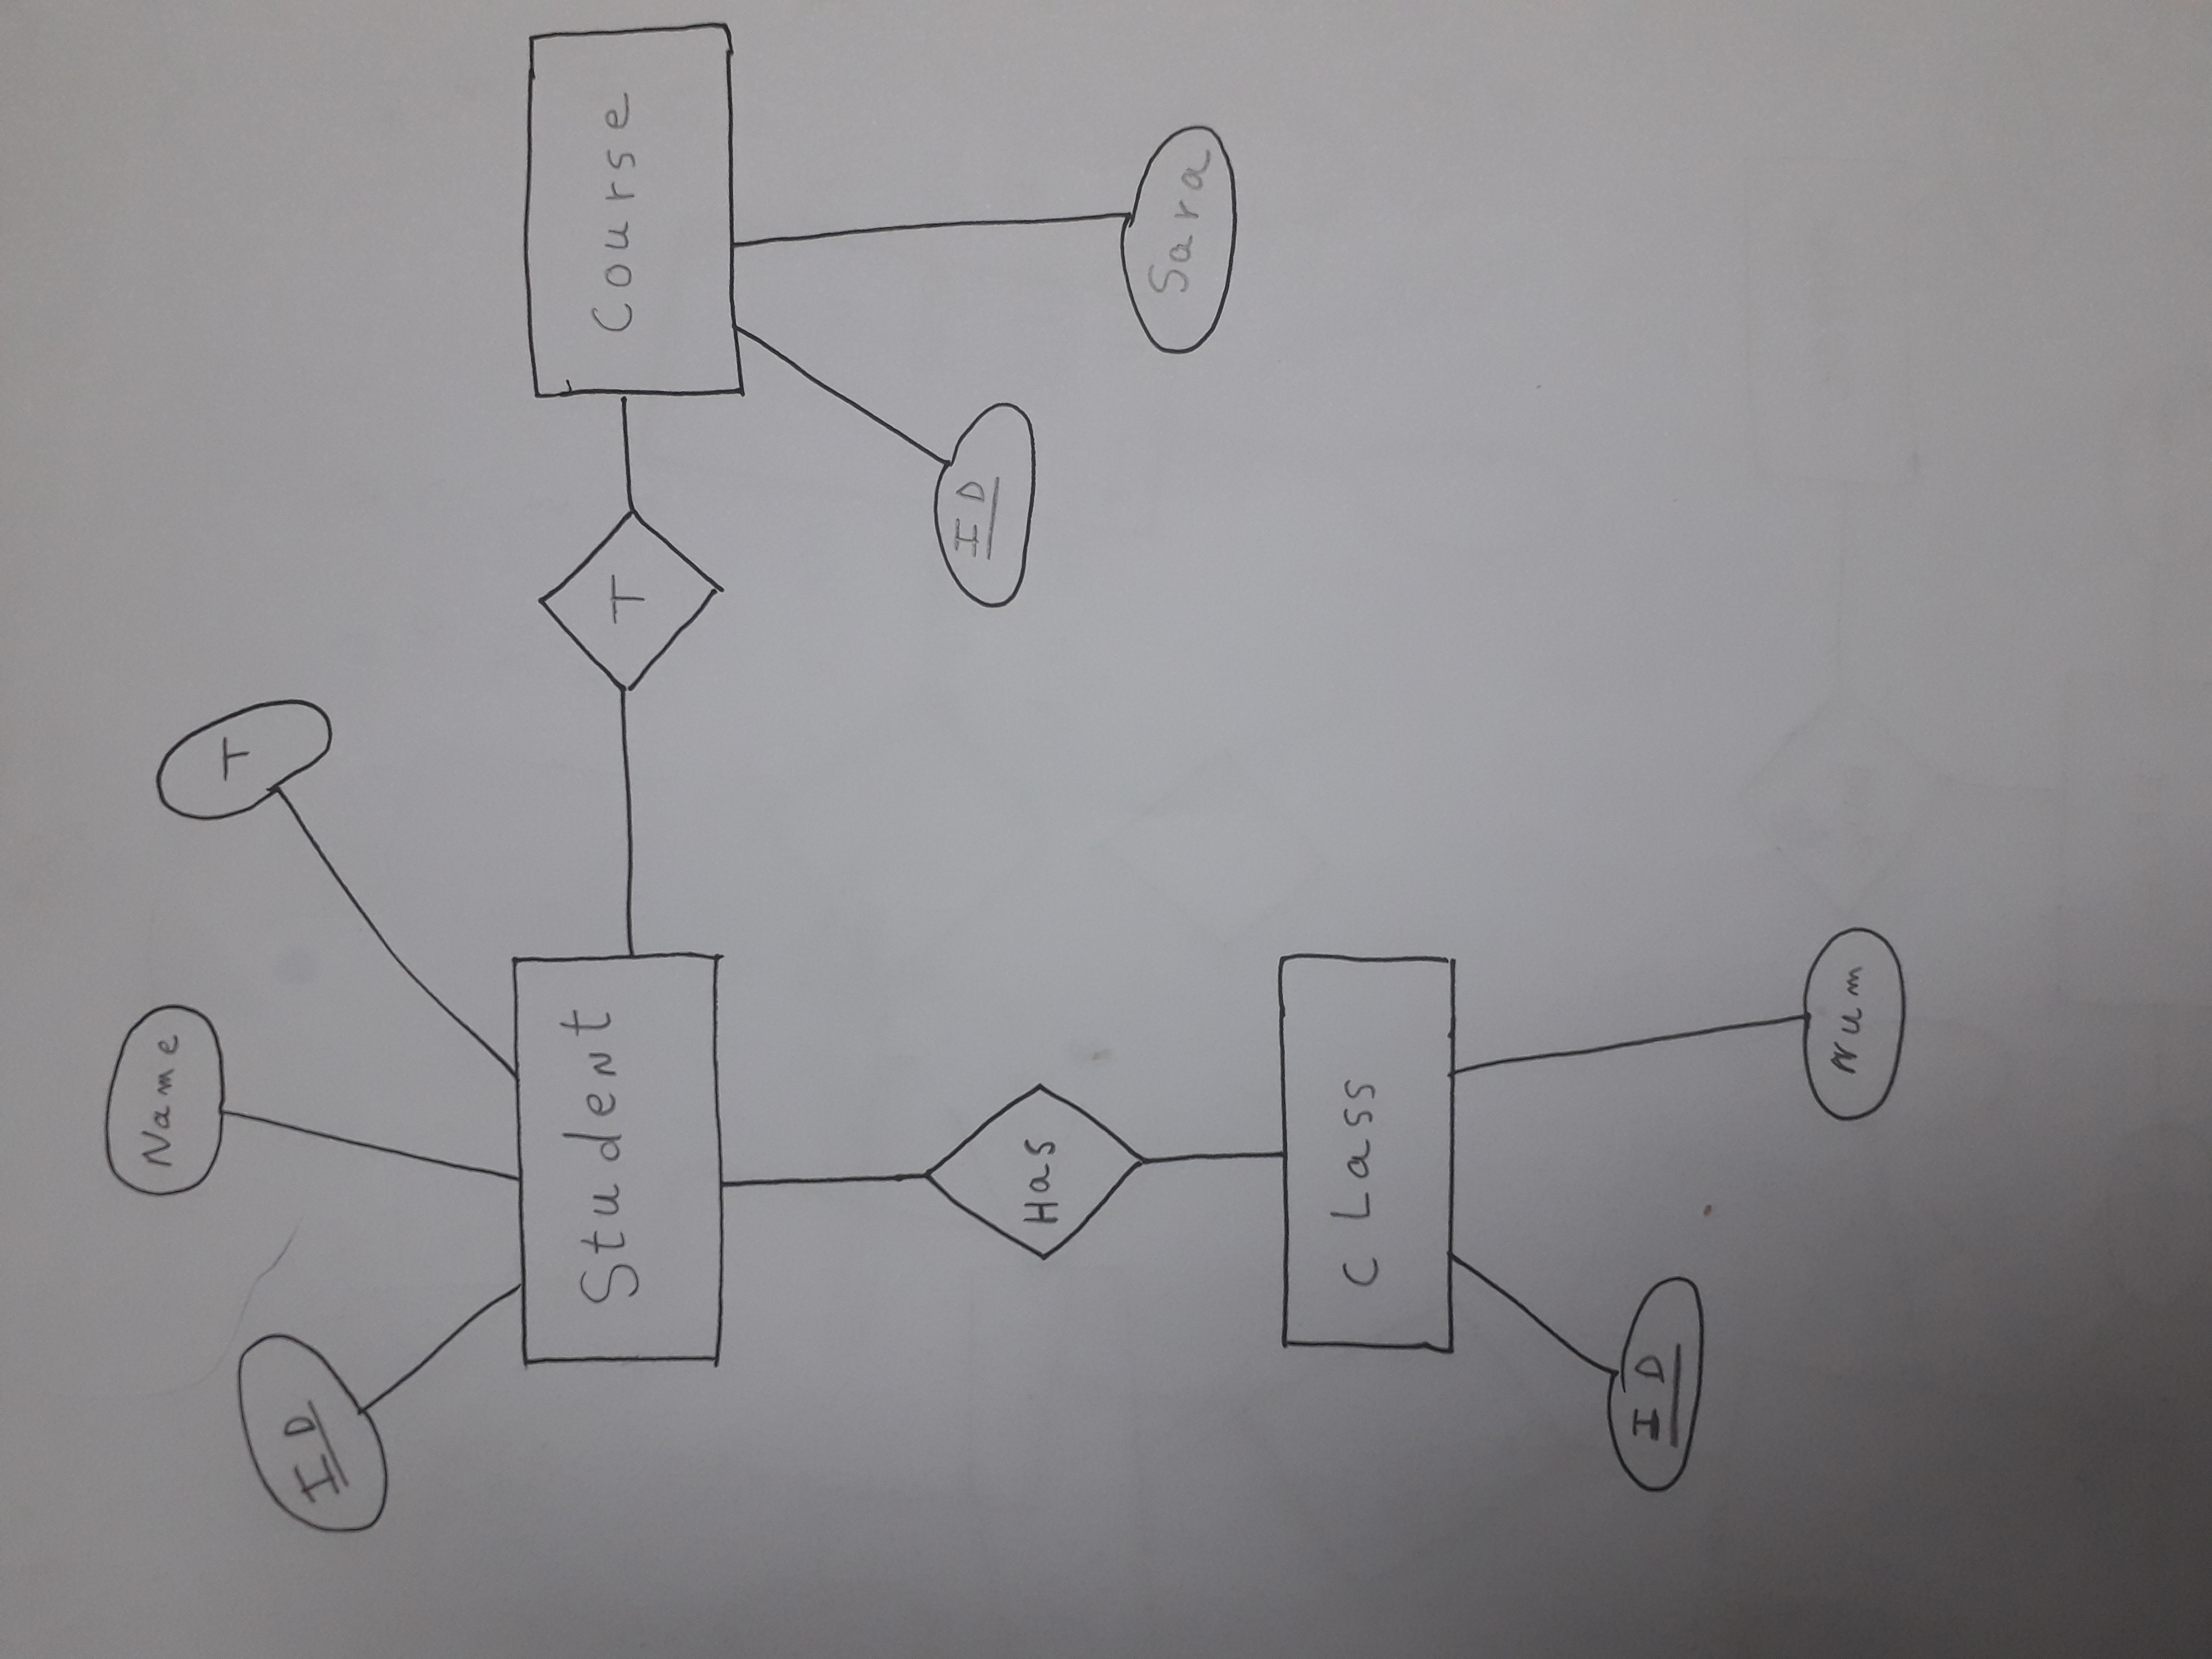 Name
T
ID
Student
T
Course
ID
Has
Sara
cLass
ID
Num